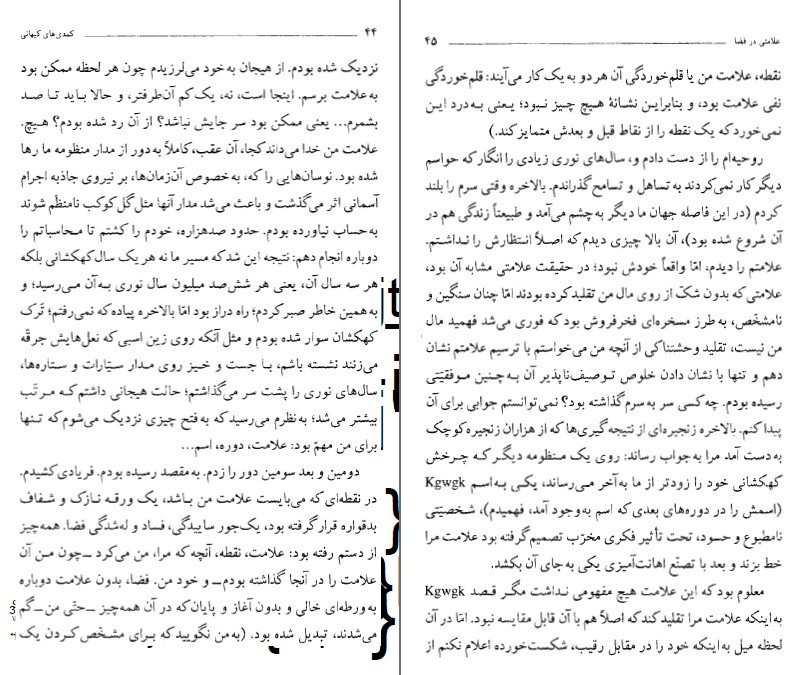 ۴۴ کمدی‌های کیهانی
نزدیک شده بودم. از هیجان به خود می‌لرزیدم چون هر لحظه ممکن بود
به علامت برسم. اینجا است، نه، یک کم آن‌طرفتر، و حالا باید تا صد
بشمرم... یعنی ممکن بود سر جایش نباشد؟ از آن رد شده بودم؟ هیچ.
علامت من خدا می‌داند کجا، آن عقب، کاملاً به دور از مدار منظومه ما رها
شده بود. نوسان‌هایی را که، به خصوص آن‌زمان‌ها، بر نیروی جاذبه اجرام
آسمانی اثر می‌گذشت و باعث می‌شد مدار آنها مثل گل کوکب نامنظّم شوند
به حساب نیاورده بودم. حدود صدهزاره، خودم را کشتم تا محاسباتم را
دوباره انجام دهم: نتیجه این شد که مسیر ما نه هر یک سال کهکشانی بلکه
هر سه سال آن، یعنی هر شش‌صد میلیون سال نوری به آن می‌رسید؛ و
به همین خاطر صبر کردم؛ راه دراز بود امّا بالاخره پیاده که نمی‌رفتم؛ تَرک
کهکشان سوار شده بودم و مثل آنکه روی زین اسبی که نعل‌هایش جرقّه
می‌زنند نشسته باشم، با جست و خیز روی مدار سیّارات و ستاره‌ها،
سال‌های نوری را پشت سر می‌گذاشتم؛ حالت هیجانی داشتم که مرتّب
بیشتر می‌شد؛ به نظرم می‌رسید که به فتح چیزی نزدیک می‌شوم که تنها
برای من مهمّ بود: علامت، دوره، اسم...
دومین و بعد سومین دور را زدم. به مقصد رسیده بودم. فریادی کشیدم.
در نقطه‌ای که می‌بایست علامت من باشد، یک ورقه نازک و شفاف
بدقواره قرار گرفته بود، یک‌جور ساییدگی، فساد و له‌شدگی فضا. همه‌چیز
از دستم رفته بود: علامت، نقطه، آنچه که مرا، من می‌کرد ـ چون من آن
علامت را در آنجا گذاشته بودم ـ و خود من. فضا، بدون علامت دوباره
به ورطه‌ای خالی و بدون آغاز و پایان که در آن همه‌چیز ـ حتّی من ـ گم
می‌شدند، تبدیل شده بود. (به من نگویید که برای مشخّص کردن یک
علامتی در فضا ۴۵
نقطه، علامت من یا قلم‌خوردگی آن هر دو به یک کار می‌آیند: قلم‌خوردگی
نفی علامت بود، و بنابراین نشانهٔ هیچ چیز نبود؛ یعنی به درد این
نمی‌خورد که یک نقطه را از نقاط قبل و بعدش متمایز کند.)
روحیه‌ام را از دست دادم و، سال‌های نوری زیادی را انگار که حواسم
دیگر کار نمی‌کردند به تساهل و تسامح گذراندم. بالاخره وقتی سرم را بلند
کردم (در این فاصله جهان ما دیگر به چشم می‌آمد و طبیعتاً زندگی هم در
آن شروع شده بود)، آن بالا چیزی دیدم که اصلاً انتظارش را نداشتم.
علامتم را دیدم، امّا واقعاً خودش نبود؛ در حقیقت علامتی مشابه آن بود،
علامتی که بدون شکّ از روی مال من تقلید کرده بودند امّا چنان سنگین و
نامشخّص، به طرز مسخره‌ای فخرفروش بود که فوری می‌شد فهمید مال
من نیست، تقلید وحشتناکی از آنچه من می‌خواستم با ترسیم علامتم نشان
دهم و تنها با نشان دادن خلوص توصیف‌ناپذیر آن به چنین موفقیّتی
رسیده بودم. چه کسی سر به سرم گذاشته بود؟ نمی‌توانستم جوابی برای آن
پیدا کنم. بالاخره زنجیره‌ای از نتیجه‌گیری‌ها که از هزاران زنجیره کوچک
به دست آمد مرا به جواب رساند: روی یک منظومه دیگر که چرخش
کهکشانی خود را زودتر از ما به آخر می‌رساند، یکی به اسم Kgwgk
(اسمش را در دوره‌های بعدی که اسم به وجود آمد، فهمیدم)، شخصیّتی
نامطبوع و حسود، تحت تأثیر فکری مخرّب تصمیم گرفته بود علامت مرا
خط بزند و بعد با تصنّع اهانت‌آمیزی یکی به جای آن بکشد.
معلوم بود که این علامت هیچ مفهومی نداشت مگر قصد Kgwgk
به اینکه علامت مرا تقلید کند که اصلاً هم با آن قابل مقایسه نبود. امّا در آن
لحظه میل به اینکه خود را در مقابل رقیب، شکست‌خورده اعلام نکنم از